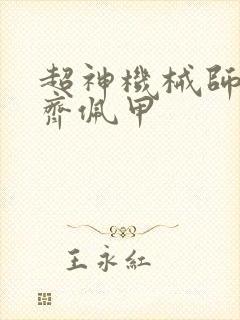 超神機械師
齊佩甲
王永紅